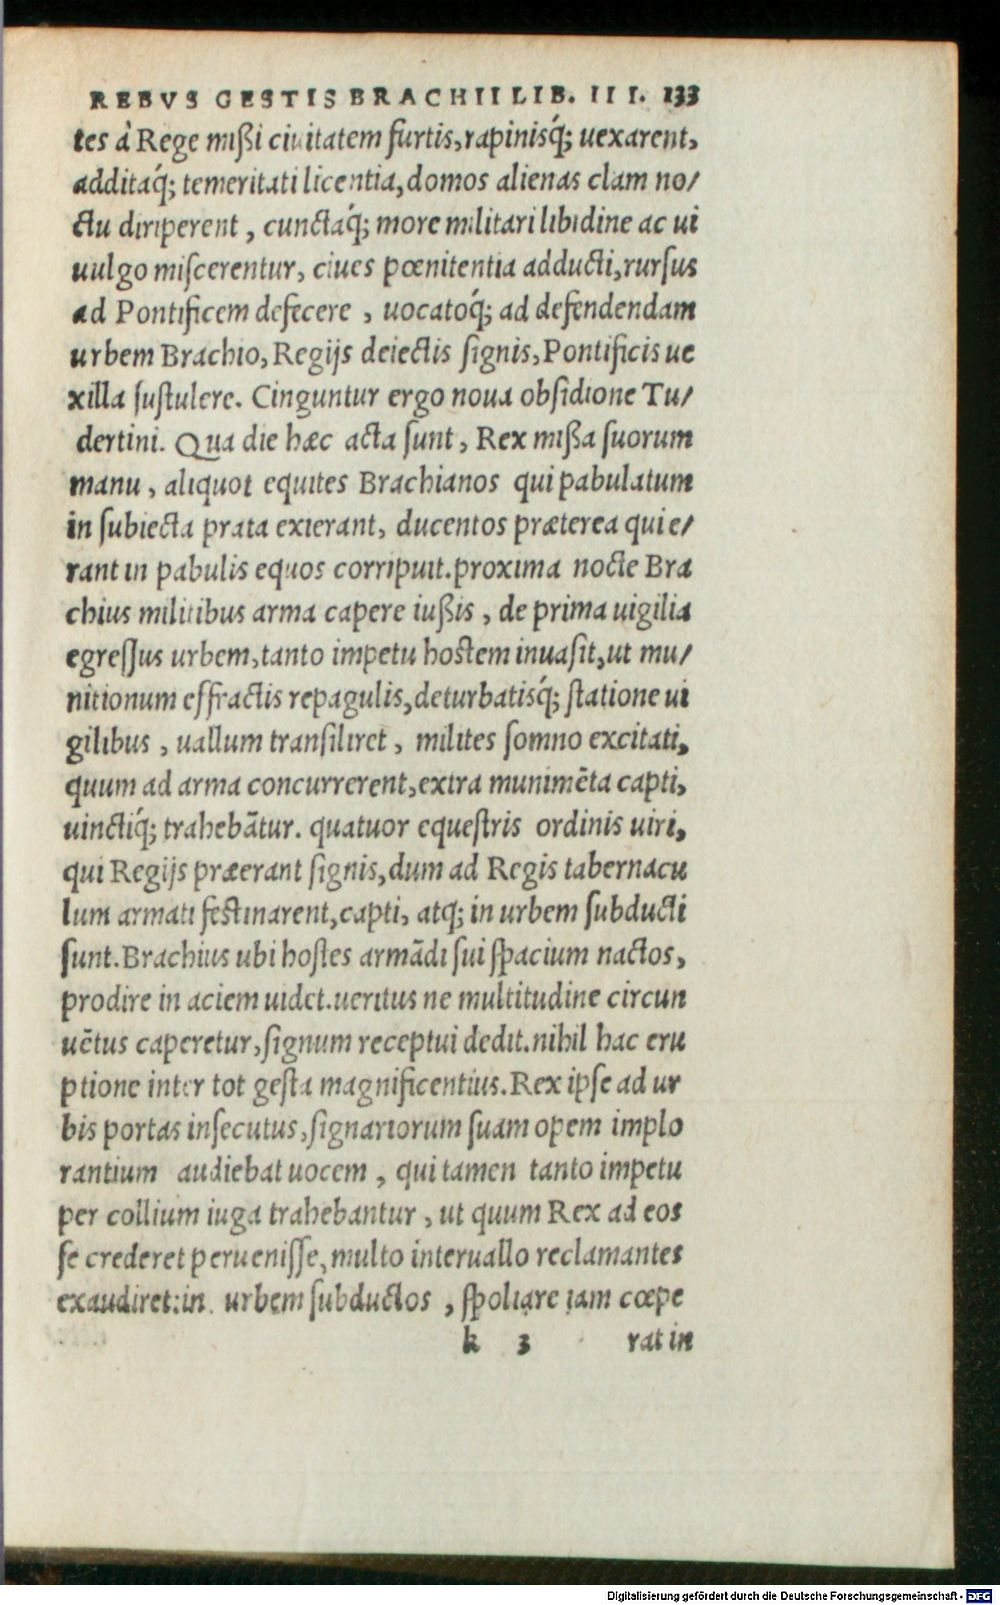 REBVS GESTIS BRACHII LIB. III. 133
tes à Rege mißi ciuitatem furtis, rapinisq́; uexarent,
additaq́; temeritati licentia, domos alienas clam no/
ctu diriperent, cunctaq́; more militari libidine ac ui
uulgo miſcerentur, ciues pœnitentia adducti, rurſus
ad Pontificem defecere, uocatoq́; ad defendendam
urbem Brachio, Regijs deiectis ſignis, Pontificis ue
xilla ſuſtulere. Cinguntur ergo noua obſidione Tu/
dertini. Qua die hæc acta ſunt, Rex mißa ſuorum
manu, aliquot equites Brachianos qui pabulatum
in ſubiecta prata exierant, ducentos præterea qui e/
rant in pabulis equos corripuit. proxima nocte Bra
chius militibus arma capere iußis, de prima uigilia
egreſſus urbem, tanto impetu hostem inuaſit, ut mu/
nitionum effractis repagulis, deturbatisq́; ſtatione ui
gilibus, uallum tranſiliret, milites ſomno excitati,
quum ad arma concurrerent, extra munimēta capti,
uinctiq́; trahebātur. quatuor equeſtris ordinis uiri,
qui Regijs præerant ſignis, dum ad Regis tabernacu
lum armati feſtinarent, capti, atq; in urbem ſubducti
ſunt. Brachius ubi hoſtes armādi ſui ſpacium nactos,
prodire in aciem uidet. ueritus ne multitudine circun
uētus caperetur, ſignum receptui dedit. nihil hac eru
ptione inter tot geſta magnificentius. Rex ipſe ad ur
bis portas inſecutus, ſignariorum ſuam opem implo
rantium audiebat uocem, qui tamen tanto impetu
per collium iuga trahebantur, ut quum Rex ad eos
ſe crederet perueniſſe, multo interuallo reclamantes
exaudiret: in urbem ſubductos, ſpoliare iam cœpe
k 3 rat in
Digitalisierung gefördert durch die Deutsche Forschungsgemeinschaft - DFG